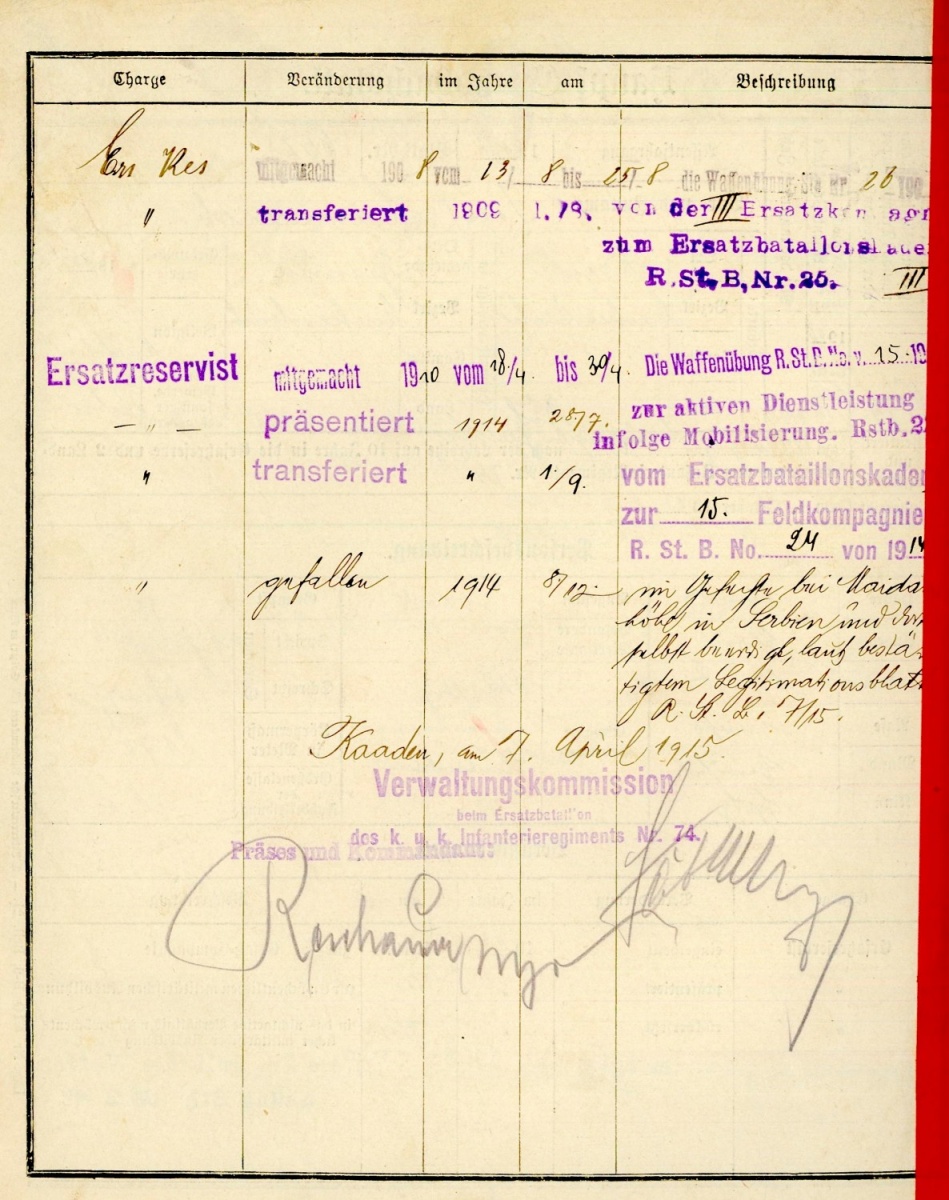 Charge Veränderung im Jahre am Beschreibung
Ers Res mitgemacht 1908 vom 13/8 bis 25/8 die Waffenübung Nr. 26 190
" transferiert 1909 1./8. von der III Ersatzkom agn
zum Ersatzbataillonskade
R. St. B, Nr. 25. III
Ersatzreservist mitgemacht 1910 vom 18./4. bis 30/4. Die Waffenübung R. St. B. No. v. 15. 19
— " — präsentiert 1914 28/7. zur aktiven Dienstleistung
infolge Mobilisierung. Rstb. 2
" transferiert " 1./9. vom Ersatzbataillonskader
zur 15. Feldkompagnie
R. St. B. No. 24 von 1914
" gefallen 1914 8/12. im Gefechte bei Maida
höhe in Serbien und dort
selbst beerdigt, laut bestä-
tigtem Legitimationsblatt
R. St. B. 7/15.
Kaaden, am 7. April 1915.
Verwaltungskommission
beim Ersatzbataillon
des k. u. k. Infanterieregiments Nr. 74.
Präses und Kommandant: